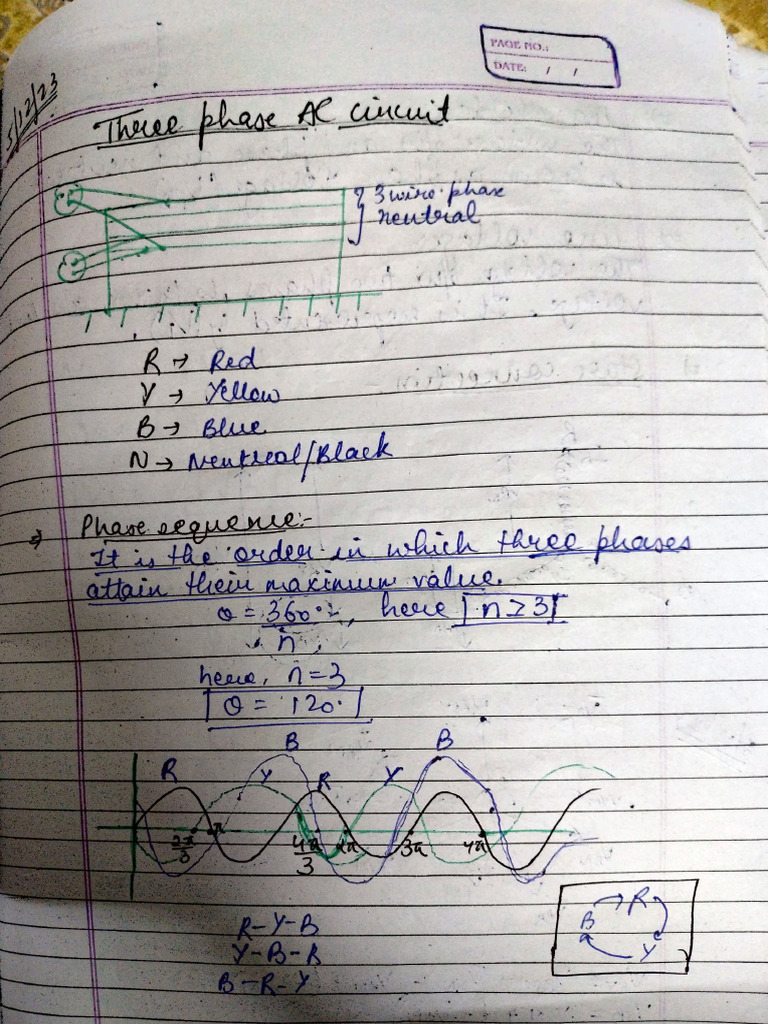 PAGE NO.:
DATE: / /
5/12/23
Three phase AC circuit
3 wire phase
neutral
R → Red
Y → Yellow
B → Blue
N → Neutral/Black
⇒ Phase sequence:-
It is the order in which three phases
attain their maximum value.
θ = 360°/n, here n ≥ 3
here, n = 3
θ = 120°
R Y B R Y B
2π/3 π 4π/3 2π 3π 4π
R-Y-B
Y-B-R
B-R-Y
B → R
Y